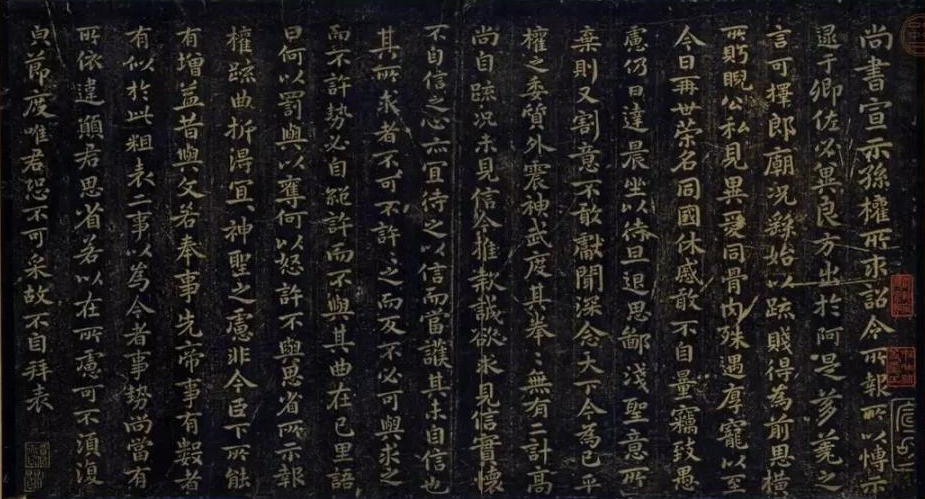 尚書宣示孫權所求詔令所報所以博示
逮于卿佐必冀良方出於阿是芻蕘之
言可擇郎廟況繇始以疏賤得為前恩橫
所眄睨公私見異愛同骨肉殊遇厚寵以至
今日再世榮名同國休慼敢不自量竊致愚
慮仍日達晨坐以待旦退思鄙淺聖意所
棄則又割意不敢獻聞深念天下今為已平
權之委質外震神武度其拳〻無有二計高
尚自疏況未見信今推款誠欲求見信實懷
不自信之心亦宜待之以信而當護其未自信也
其所求者不可不許〻之而反不必可與求之
而不許勢必自絕許而不與其曲在己里語
曰何以罰與以奪何以怒許不與思省所示報
權疏曲折得宜〻神聖之慮非今臣下所能
有增益昔與文若奉事先帝事有數者
有似於此粗表二事以為今者事勢尚當有
所依違願君思省若以在所慮可不須復
皃節度唯君恐不可采故不自拜表